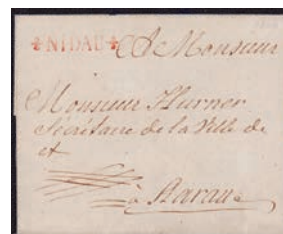 NIDAU A Monsieur
Monsieur Hurner
Secrétaire de la Ville de
et
à Aarau